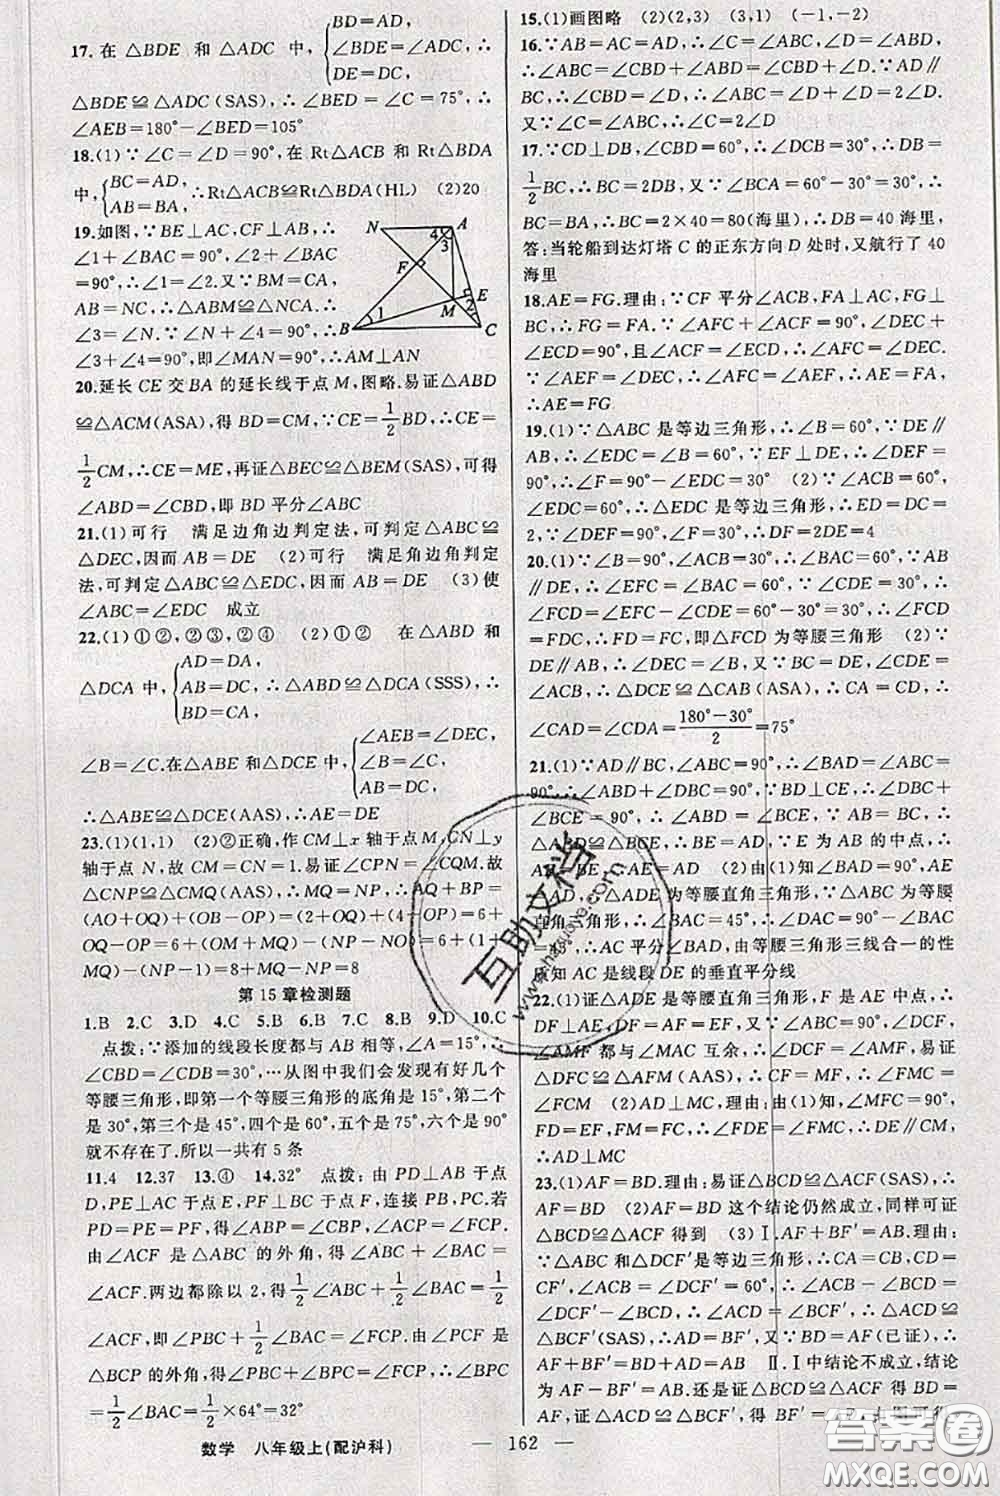 17.在 △BDE 和 △ADC 中,{BD=AD, ∠BDE=∠ADC, DE=DC,∴
△BDE≌△ADC(SAS),∴∠BED=∠C=75°,∴
∠AEB=180°-∠BED=105°
18.(1)∵∠C=∠D=90°,在 Rt△ACB 和 Rt△BDA
中,{BC=AD, AB=BA,∴Rt△ACB≌Rt△BDA(HL) (2)20
19.如图,∵BE⊥AC,CF⊥AB,∴
∠1+∠BAC=90°,∠2+∠BAC
=90°,∴∠1=∠2.又∵BM=CA,
AB=NC,∴△ABM≌△NCA.∴
∠3=∠N.∵∠N+∠4=90°,∴
∠3+∠4=90°,即∠MAN=90°,∴AM⊥AN
N A 4 3 F E M 2 B 1 C
20.延长 CE 交 BA 的延长线于点 M,图略.易证△ABD
≌△ACM(ASA),得 BD=CM,∵CE=1/2BD,∴CE=
1/2CM,∴CE=ME,再证△BEC≌△BEM(SAS),可得
∠ABD=∠CBD,即 BD 平分∠ABC
21.(1)可行 满足边角边判定法,可判定△ABC≌
△DEC,因而 AB=DE (2)可行 满足角边角判定
法,可判定△ABC≌△EDC,因而 AB=DE (3)使
∠ABC=∠EDC 成立
22.(1)①②,②③,②④ (2)①② 在△ABD 和
△DCA 中,{AD=DA, AB=DC, BD=CA,∴△ABD≌△DCA(SSS),∴
∠B=∠C.在△ABE 和△DCE 中,{∠AEB=∠DEC, ∠B=∠C, AB=DC,
∴△ABE≌△DCE(AAS),∴AE=DE
23.(1)(1,1) (2)②正确,作 CM⊥x 轴于点 M,CN⊥y
轴于点 N,故 CM=CN=1.易证∠CPN=∠CQM.故
△CNP≌△CMQ(AAS),∴MQ=NP,∴AQ+BP=
(AO+OQ)+(OB-OP)=(2+OQ)+(4-OP)=6+
OQ-OP=6+(OM+MQ)-(NP-ON)=6+(1+
MQ)-(NP-1)=8+MQ-NP=8
第 15 章检测题
1.B 2.C 3.D 4.C 5.B 6.B 7.C 8.B 9.D 10.C
点拨:∵添加的线段长度都与 AB 相等,∠A=15°,∴
∠CBD=∠CDB=30°,…从图中我们会发现有好几个
等腰三角形,即第一个等腰三角形的底角是 15°,第二个
是 30°,第三个是 45°,四个是 60°,五个是 75°,六个是 90°
就不存在了.所以一共有 5 条
11.4 12.37 13.④ 14.32° 点拨:由 PD⊥AB 于点
D,PE⊥AC 于点 E,PF⊥BC 于点 F,连接 PB,PC.若
PD=PE=PF,得∠ABP=∠CBP,∠ACP=∠FCP.
由∠ACF 是△ABC 的外角,得∠ABC+∠BAC=
∠ACF.两边都除以 2,得 1/2∠ABC+1/2∠BAC=1/2
∠ACF,即∠PBC+1/2∠BAC=∠FCP.由∠PCF 是
△BCP 的外角,得∠PBC+∠BPC=∠FCP,∴∠BPC
=1/2∠BAC=1/2×64°=32°
15.(1)画图略 (2)(2,3) (3,1) (-1,-2)
16.∵AB=AC=AD,∴∠C=∠ABC,∠D=∠ABD,
∴∠ABC=∠CBD+∠ABD=∠CBD+∠D.∵AD∥
BC,∴∠CBD=∠D,∴∠ABC=∠D+∠D=2∠D.
又∵∠C=∠ABC,∴∠C=2∠D
17.∵CD⊥DB,∠CBD=60°,∴∠DCB=30°,∴DB=
1/2BC,∴BC=2DB,又∵∠BCA=60°-30°=30°,∴
BC=BA,∴BC=2×40=80(海里),∴DB=40 海里,
答:当轮船到达灯塔 C 的正东方向 D 处时,又航行了 40
海里
18.AE=FG.理由:∵CF 平分∠ACB,FA⊥AC,FG⊥
BC,∴FG=FA.∵∠AFC+∠ACF=90°,∠DEC+
∠ECD=90°,且∠ACF=∠ECD,∴∠AFC=∠DEC.
∵∠AEF=∠DEC,∴∠AFC=∠AEF,∴AE=FA,
∴AE=FG
19.(1)∵△ABC 是等边三角形,∴∠B=60°,∵DE∥
AB,∴∠EDC=∠B=60°,∵EF⊥DE,∴∠DEF=
90°,∴∠F=90°-∠EDC=30° (2)∵∠ACB=60°,
∠EDC=60°,∴△EDC 是等边三角形,∴ED=DC=
2,∵∠DEF=90°,∠F=30°,∴DF=2DE=4
20.(1)∵∠B=90°,∠ACB=30°,∴∠BAC=60°,∵AB
∥DE,∴∠EFC=∠BAC=60°,∵∠CDE=30°,∴
∠FCD=∠EFC-∠CDE=60°-30°=30°,∴∠FCD
=FDC,∴FD=FC,即△FCD 为等腰三角形 (2)∵
DE∥AB,∴∠DEC=∠B,又∵BC=DE,∠CDE=
∠ACB,∴△DCE≌△CAB(ASA),∴CA=CD,∴
∠CAD=∠CDA=(180°-30°)/2=75°
21.(1)∵AD∥BC,∠ABC=90°,∴∠BAD=∠ABC=
90°,∴∠ABD+∠DBC=90°,∵BD⊥CE,∴∠DBC+
∠BCE=90°,∴∠ABD=∠BCE,∵AB=BC,∴
△ABD≌△BCE(ASA),∴BE=AD,∵E 为 AB 的中点,∴
AE=BE,∴AE=AD (2)由(1)知∠BAD=90°,AE
=AD,∴△ADE 为等腰直角三角形,∵△ABC 为等腰
直角三角形,∴∠BAC=45°,∴∠DAC=90°-∠BAC
=45°,∴AC 平分∠BAD,由等腰三角形三线合一的性
质知 AC 是线段 DE 的垂直平分线
22.(1)证△ADE 是等腰直角三角形,F 是 AE 中点,∴
DF⊥AE,DF=AF=EF,又∵∠ABC=90°,∠DCF,
∠AMF 都与∠MAC 互余,∴∠DCF=∠AMF,易证
△DFC≌△AFM(AAS),∴CF=MF,∴∠FMC=
∠FCM (2)AD⊥MC,理由:由(1)知,∠MFC=90°,
FD=FE,FM=FC,∴∠FDE=∠FMC,∴DE∥CM,
∴AD⊥MC
23.(1)AF=BD.理由:易证△BCD≌△ACF(SAS),∴
AF=BD (2)AF=BD 这个结论仍然成立,同样可证
△BCD≌△ACF 得到 (3)Ⅰ.AF+BF′=AB.理由:
∵△ABC 和△DCF′是等边三角形,∴CA=CB,CD=
CF′,∠ACB=∠DCF′=60°,∴∠ACB-∠BCD=
∠DCF′-∠BCD,∴∠ACD=∠BCF′,∴△ACD≌
△BCF′(SAS),∴AD=BF′,又∵BD=AF(已证),∴
AF+BF′=BD+AD=AB Ⅱ.Ⅰ中结论不成立,结论
为 AF-BF′=AB.还是证△BCD≌△ACF 得 BD=
数学 八年级上(配沪科)
— 162 —
互助文档
www.hzjoye.com
答案圈
MXQE.COM